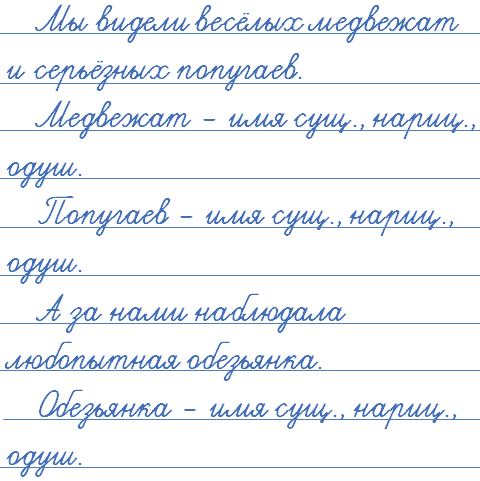 Мы видели весёлых медвежат
и серьёзных попугаев.
Медвежат – имя сущ., нариц.,
одуш.
Попугаев – имя сущ., нариц.,
одуш.
А за нами наблюдала
любопытная обезьянка.
Обезьянка – имя сущ., нариц.,
одуш.